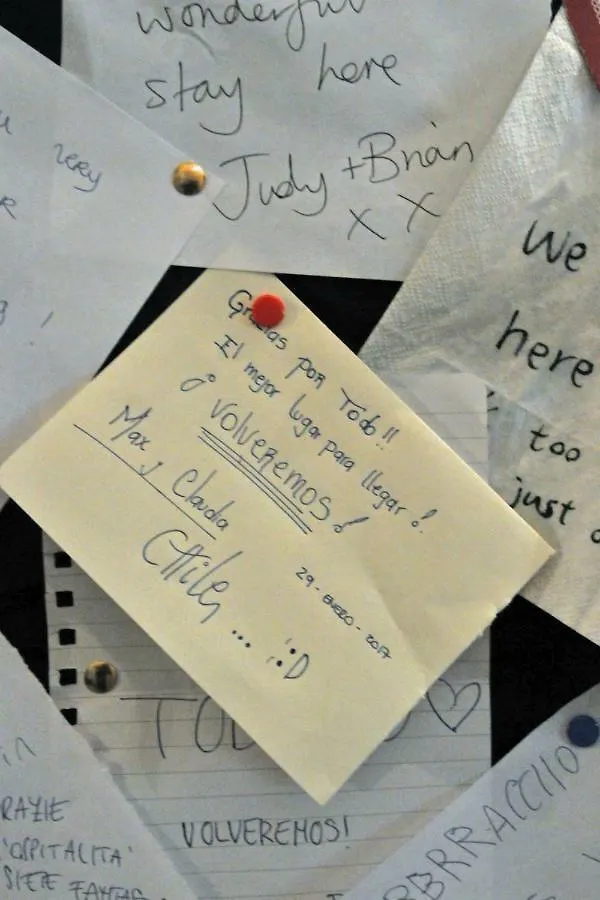 wonderful
stay here
Judy + Brian
x x
very
We
here
too
just
Gracias por Todo!!
El mejor lugar para llegar!
¡VOLVEREMOS!
Max y Claudia
CHILE
... :D
29 - ENERO - 2017
VOLVEREMOS!
RAZIE
'OSPITALITA'
SIETE FANTAS
BBRRACCIIO